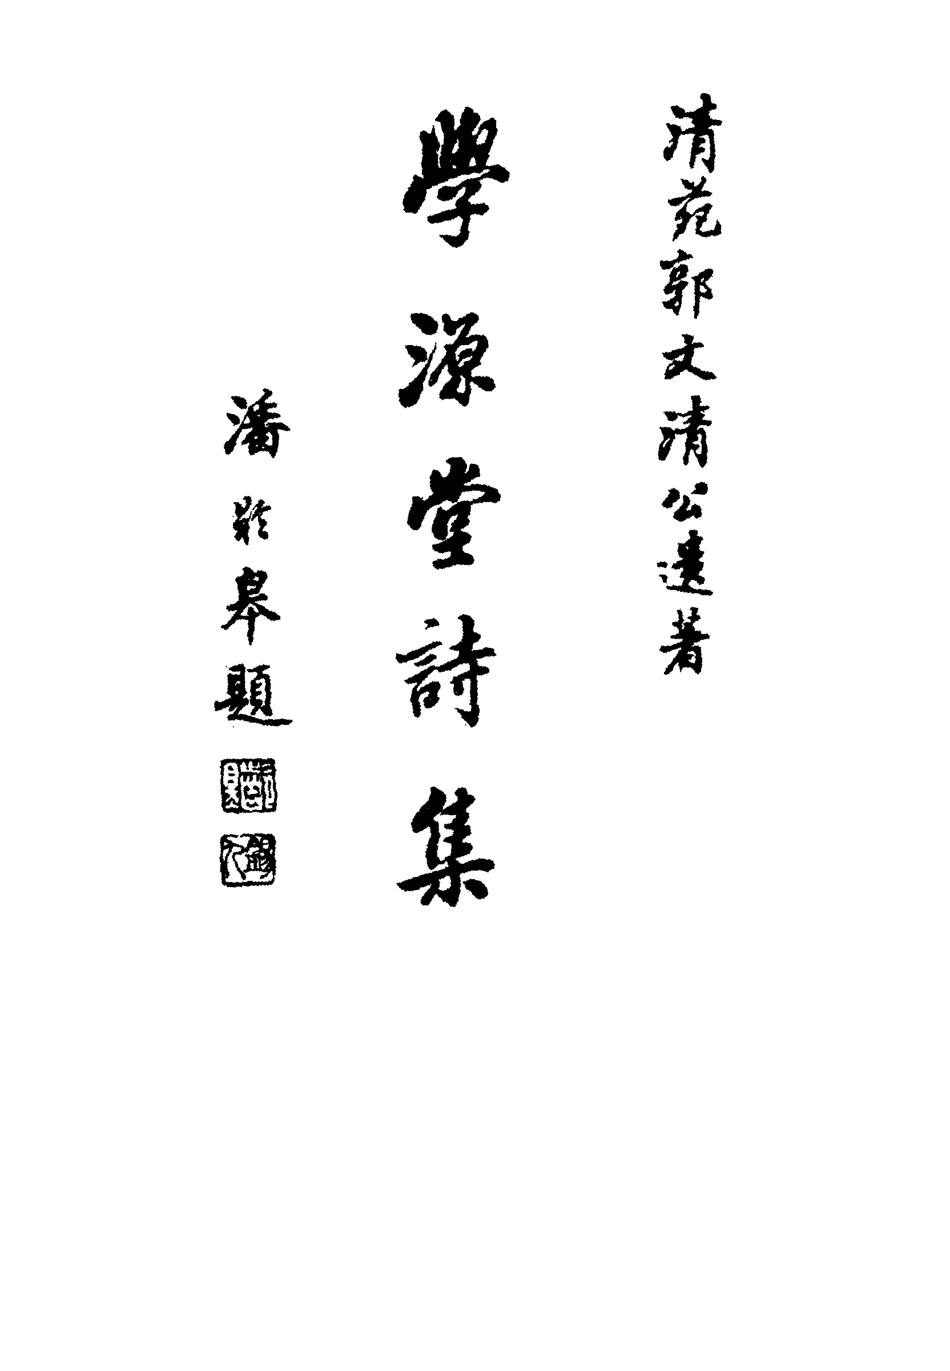 清苑郭文清公遺著
學源堂詩集
潘齡皋題